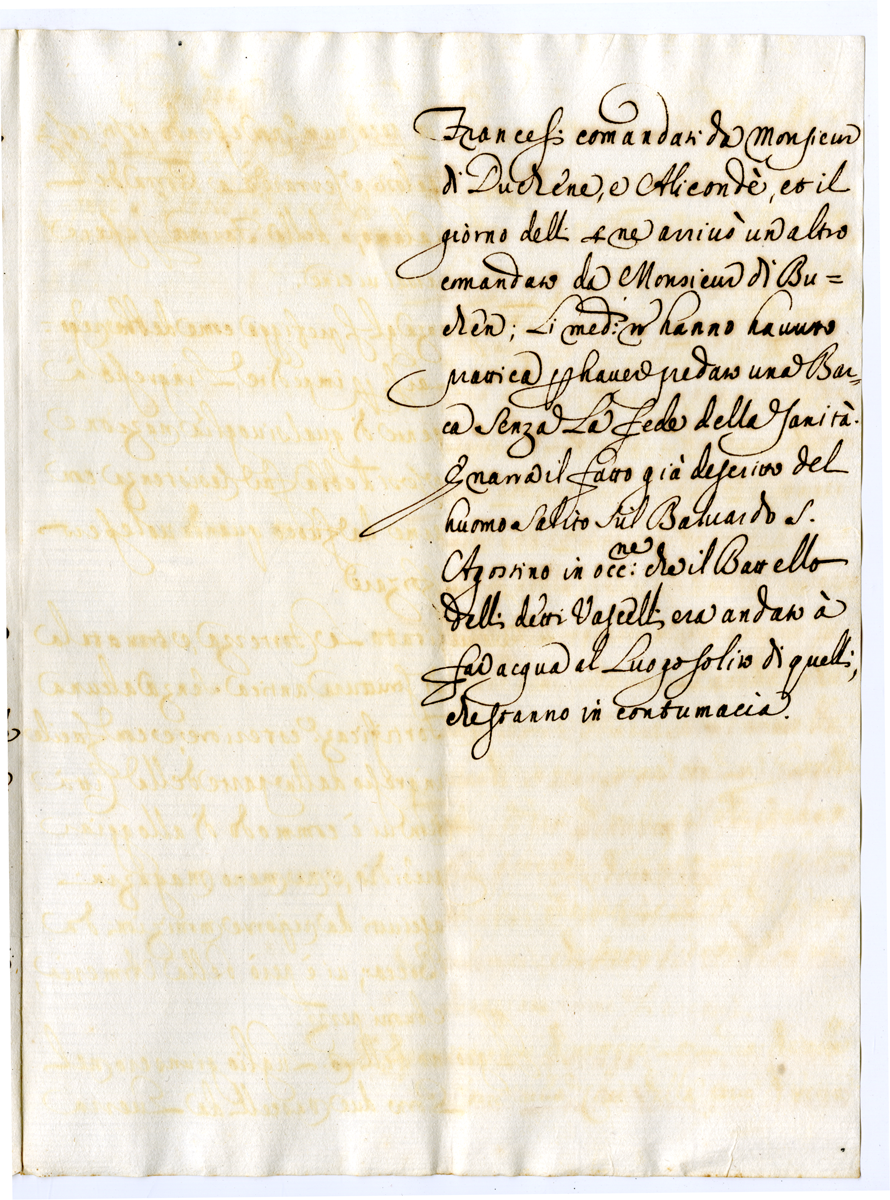 Francesi comandati da Monsieur
di Duchéne, e Aliconde, et il
giorno delli 4 ne arrivò un altro
comandato da Monsieur di Bu=
chén; Li med:mi hanno havuto
prattica p haver predato una Bar=
ca senza La Fede della sanità.
E narra il fatto già descritto del
huomo salito sul Baluardo S.
Agostino in occ:ne che il Battello
delli detti Vascelli era andato à
far acqua al Luogo solito di quelli,
che stanno in contumacia.